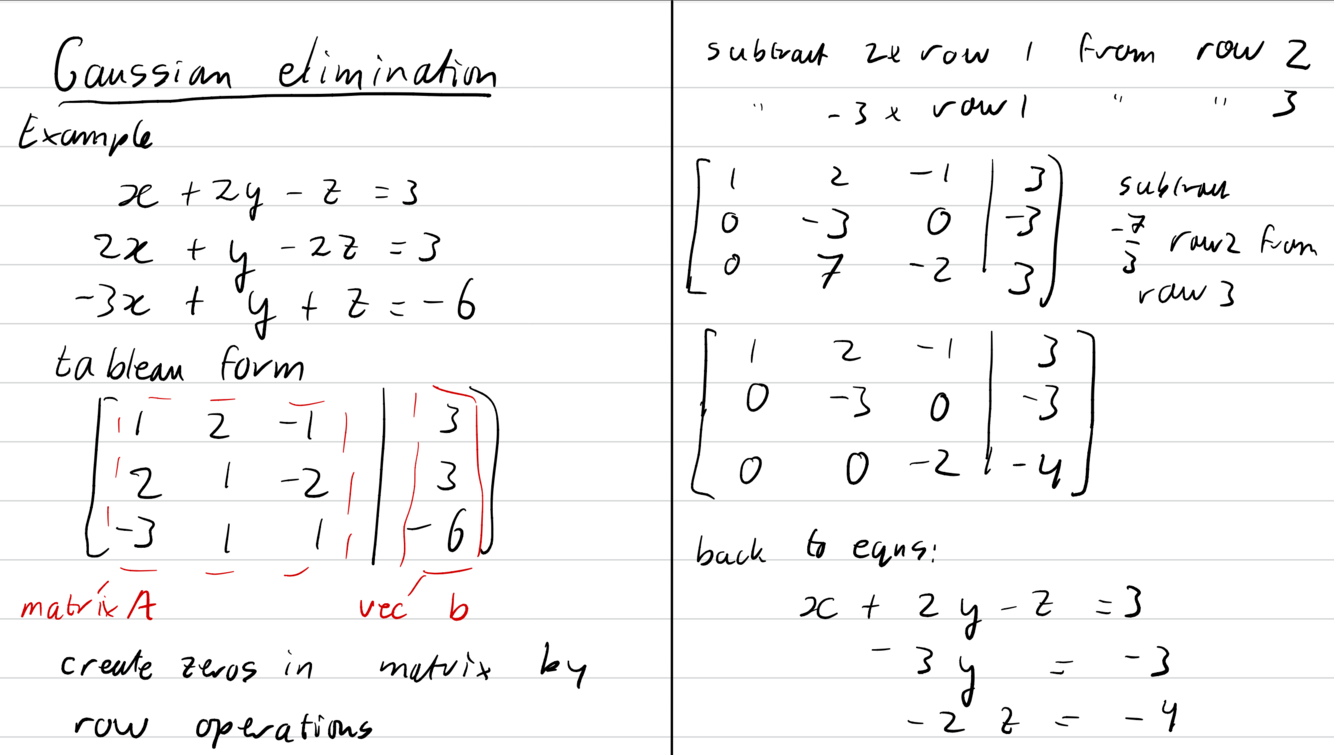 Gaussian elimination
Example
x + 2y - z = 3
2x + y - 2z = 3
-3x + y + z = -6
tableau form
[ 1 2 -1 | 3 ]
[ 2 1 -2 | 3 ]
[ -3 1 1 | -6 ]
matrix A vec b
create zeros in matrix by
row operations
subtract 2x row 1 from row 2
" -3 x row 1 " " 3
[ 1 2 -1 | 3 ]
[ 0 -3 0 | -3 ]
[ 0 7 -2 | 3 ]
subtract
-7/3 row 2 from
row 3
[ 1 2 -1 | 3 ]
[ 0 -3 0 | -3 ]
[ 0 0 -2 | -4 ]
back to eqns:
x + 2y - z = 3
-3y = -3
-2z = -4